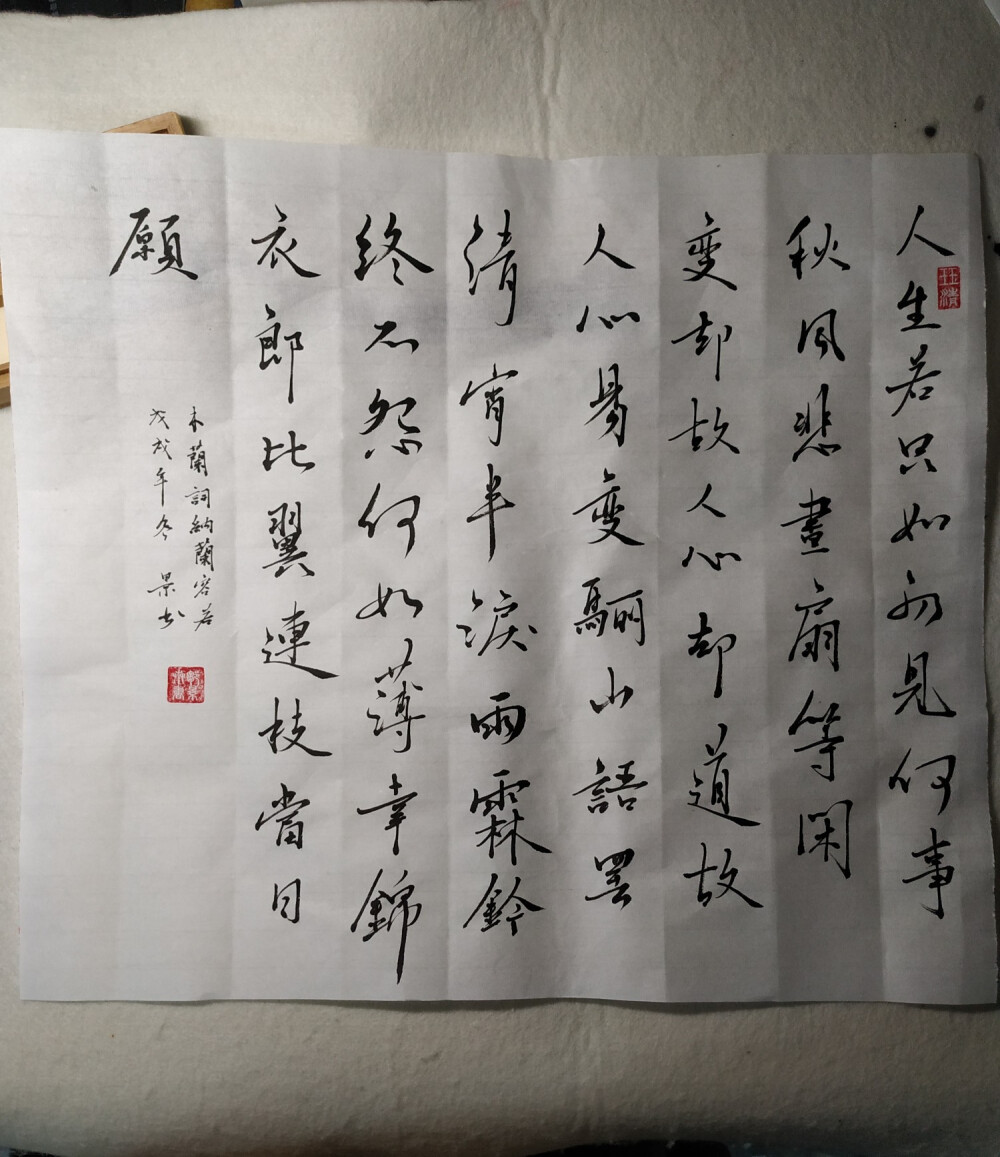 人生若只如初見何事
秋风悲畫扇等闲
变却故人心却道故
人心易變驪山語罢
清宵半淚雨霖鈴
終不怨何如薄幸錦
衣郎比翼連枝當日
願
木蘭詞納蘭容若
戊戌年冬 景书